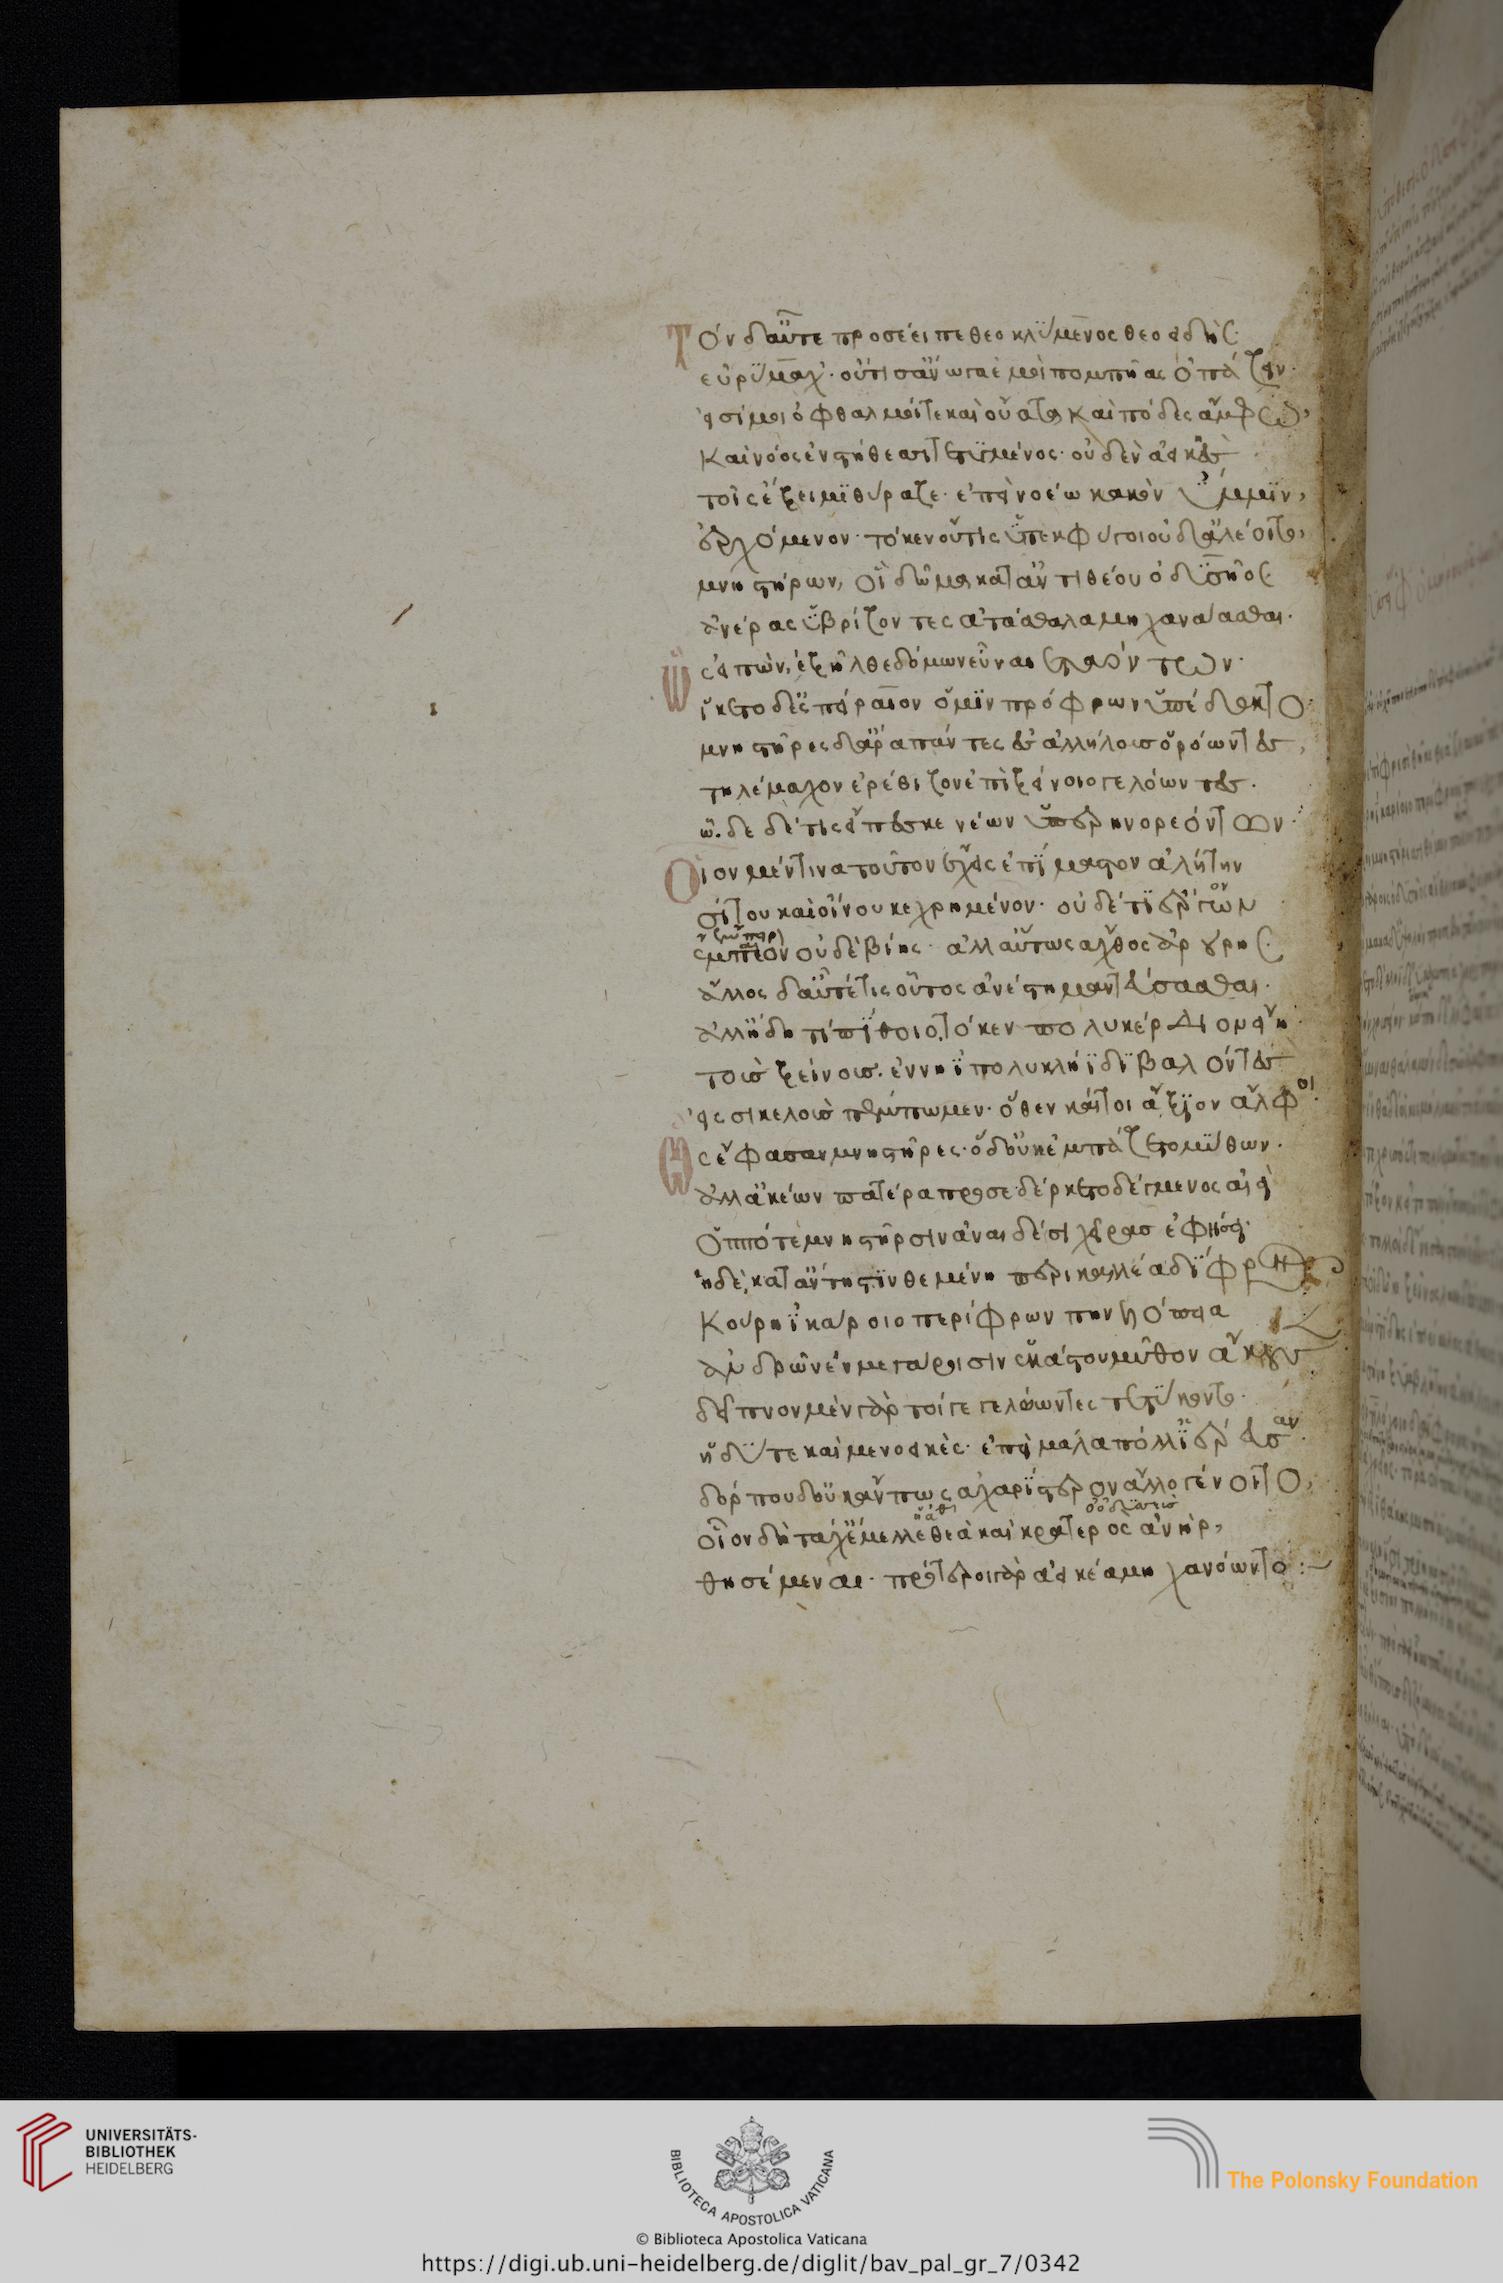 Τὸν δ' αὖτε προσέειπε θεοκλύμενος θεοειδής·
εὐρύμαχ'· οὔτι σ' ἄνωγα ἐμοὶ πομπῆας ὀπάζειν·
εἰσί μοι ὀφθαλμοί τε καὶ οὔατα καὶ πόδες ἄμφω,
καὶ νόος ἐν στήθεσσι τετυγμένος· οὐδὲν ἀεικής
τοῖς ἔξειμι θύραζε· ἐπεὶ νοέω κακὸν ὔμμιν,
ἐρχόμενον· τό κεν οὔτις ὑπεκφύγοι οὐδ' ἀλέοιτο,
μνηστήρων, οἳ δῶμα κατ' ἀντιθέου ὀδυσῆος
ἀνέρας ὑβρίζοντες ἀτάσθαλα μηχανάασθαι·
Ὣς εἰπὼν, ἐξῆλθε δόμων εὖ ναιεταόντων·
ἵκετο δ' ἐς πείραιον ὅ μιν πρόφρων ὑπέδεκτο·
μνηστῆρες δ' ἄρα πάντες ἐς ἀλλήλους ὁρόωντες,
τηλέμαχον ἐρέθιζον ἐπὶ ξείνοις γελόωντες·
ὧδε δέ τις εἴπεσκε νέων ὑπερηνορεόντων·
Οἷον μέν τινα τοῦτον ἔχεις ἐπίμαστον ἀλήτην
σίτου καὶ οἴνου κεχρημένον· οὐδέ τι ἔργων
ἔμπαιον οὐδὲ βίης· ἀλλ' αὔτως ἄχθος ἀρούρης·
ἄλλος δ' αὖτέ τις οὗτος ἀνέστη μαντεύσασθαι·
ἀλλ' ἤδη τί πίθοιο, τό κεν πολὺ κέρδιον εἴη·
τοὺς ξείνους ἐν νηῒ πολυκλήϊδι βαλόντες
ἐς σικελοὺς πέμπωμεν· ὅθεν κέ τοι ἄξιον ἄλφοι·
Ὣς ἔφασαν μνηστῆρες· ὁ δ' οὐκ ἐμπάζετο μύθων·
ἀλλ' ἀκέων πατέρα προσεδέρκετο δέγμενος αἰεὶ
ὁππότε μνηστῆρσιν ἀναιδέσι χεῖρας ἐφήσει·
ἡ δὲ, κατ' ἄντηστιν θεμένη περικαλλέα δίφρον
Κούρη ἰκαρίοιο περίφρων πηνελόπεια
ἀνδρῶν ἐν μεγάροισιν ἑκάστου μῦθον ἄκουε
δεῖπνον μὲν γὰρ τοί γε γελώωντες τετύκοντο·
ἡδύ τε καὶ μενοεικές· ἐπεὶ μάλα πόλλ' ἱέρευσαν·
δόρπου δ' οὐκ ἄν πως ἀχαρίστερον ἄλλο γένοιτο,
οἷον δὴ τάχ' ἔμελλε θεὰ καὶ κρατερὸς ἀνὴρ,
θησέμεναι· πρότεροι γὰρ ἀεικέα μηχανόωντο :~
UNIVERSITÄTS-
BIBLIOTHEK
HEIDELBERG
BIBLIOTECA APOSTOLICA VATICANA
The Polonsky Foundation
© Biblioteca Apostolica Vaticana
https://digi.ub.uni-heidelberg.de/diglit/bav_pal_gr_7/0342